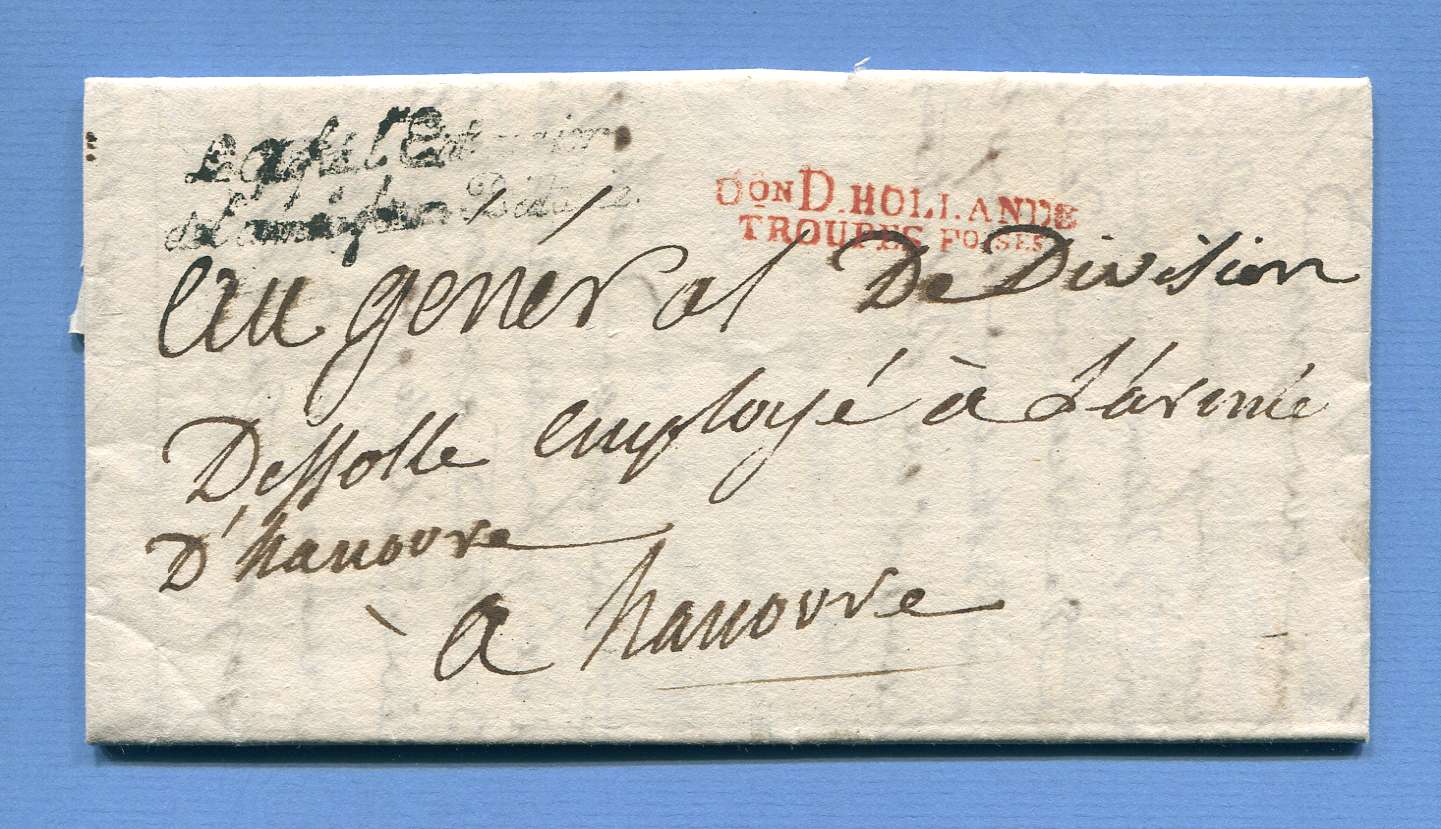 Bon D. HOLLANDE
TROUPES FOISES
Au général De Division
Dessolle employé à L'armée
D'hanovre
a hanovre